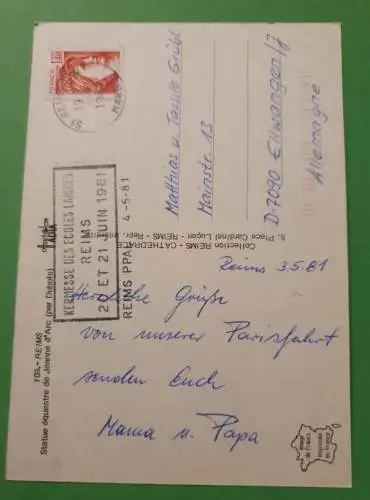 FRANCE
1,40
51 REIMS
MARNE
KERMESSE DES ECOLES LAIQUES
REIMS
20 ET 21 JUIN 1981
REIMS PPAL 4-5-81
Matthias u. Familie Grübl
Mainstr. 13
D-7090 Ellwangen/J
Allemagne
Collection REIMS - CATHEDRALE
5, Place Cardinal Luçon - REIMS - Repr. Interdite
109.- REIMS
Statue équestre de Jeanne d'Arc (par Dubois)
Reims 3.5.81
Herzliche Grüße
von unserer Parisfahrt
senden Euch
Mama u. Papa
Image
de France
Imprimée
en France